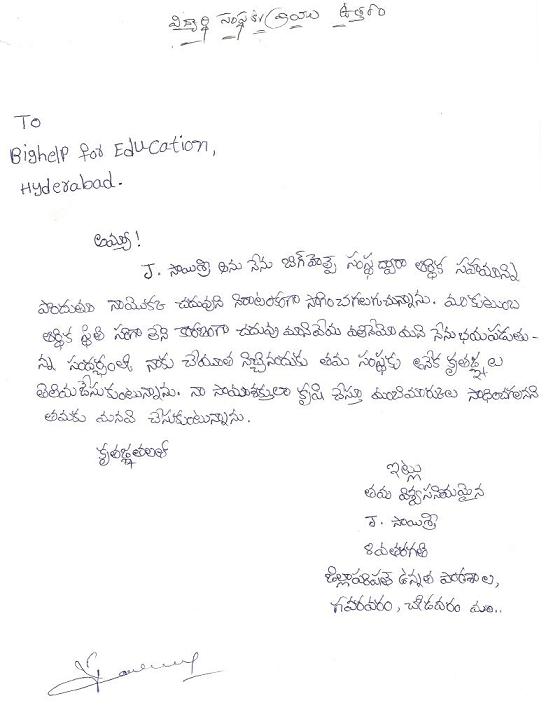 విద్యార్థి సంస్థకు వ్రాయు ఉత్తరం
To
Bighelp for Education,
Hyderabad.
అమ్మా!
J. సాయిశ్రీ అను నేను బిగ్‌హెల్ప్ సంస్థ ద్వారా ఆర్థిక సహాయాన్ని
పొందుతూ నాయొక్క చదువుని నిరాటంకంగా సాగించగలుగుచున్నాను. మా కుటుంబ
ఆర్థిక స్థితి సరిగా లేని కారణంగా చదువు మానివేయ వలెనేమో యని నేను భయపడుతు-
న్న సందర్భంలో నాకు చేయూత నిచ్చినందుకు తమ సంస్థకు అనేక కృతజ్ఞ్నలు
తెలియచేసుకుంటున్నాను. నా సాయశక్తులా కృషి చేస్తూ మంచిమార్కులు సాధించగలనని
తమకు మనవి చేసుకుంటున్నాను.
కృతజ్ఞతలతో
ఇట్లు
తమ విశ్వసనీయమైన
J. సాయిశ్రీ
8వతరగతి
జిల్లాపరిషత్ ఉన్నత పాఠశాల,
గవరవరం, చీడికాడ మం..